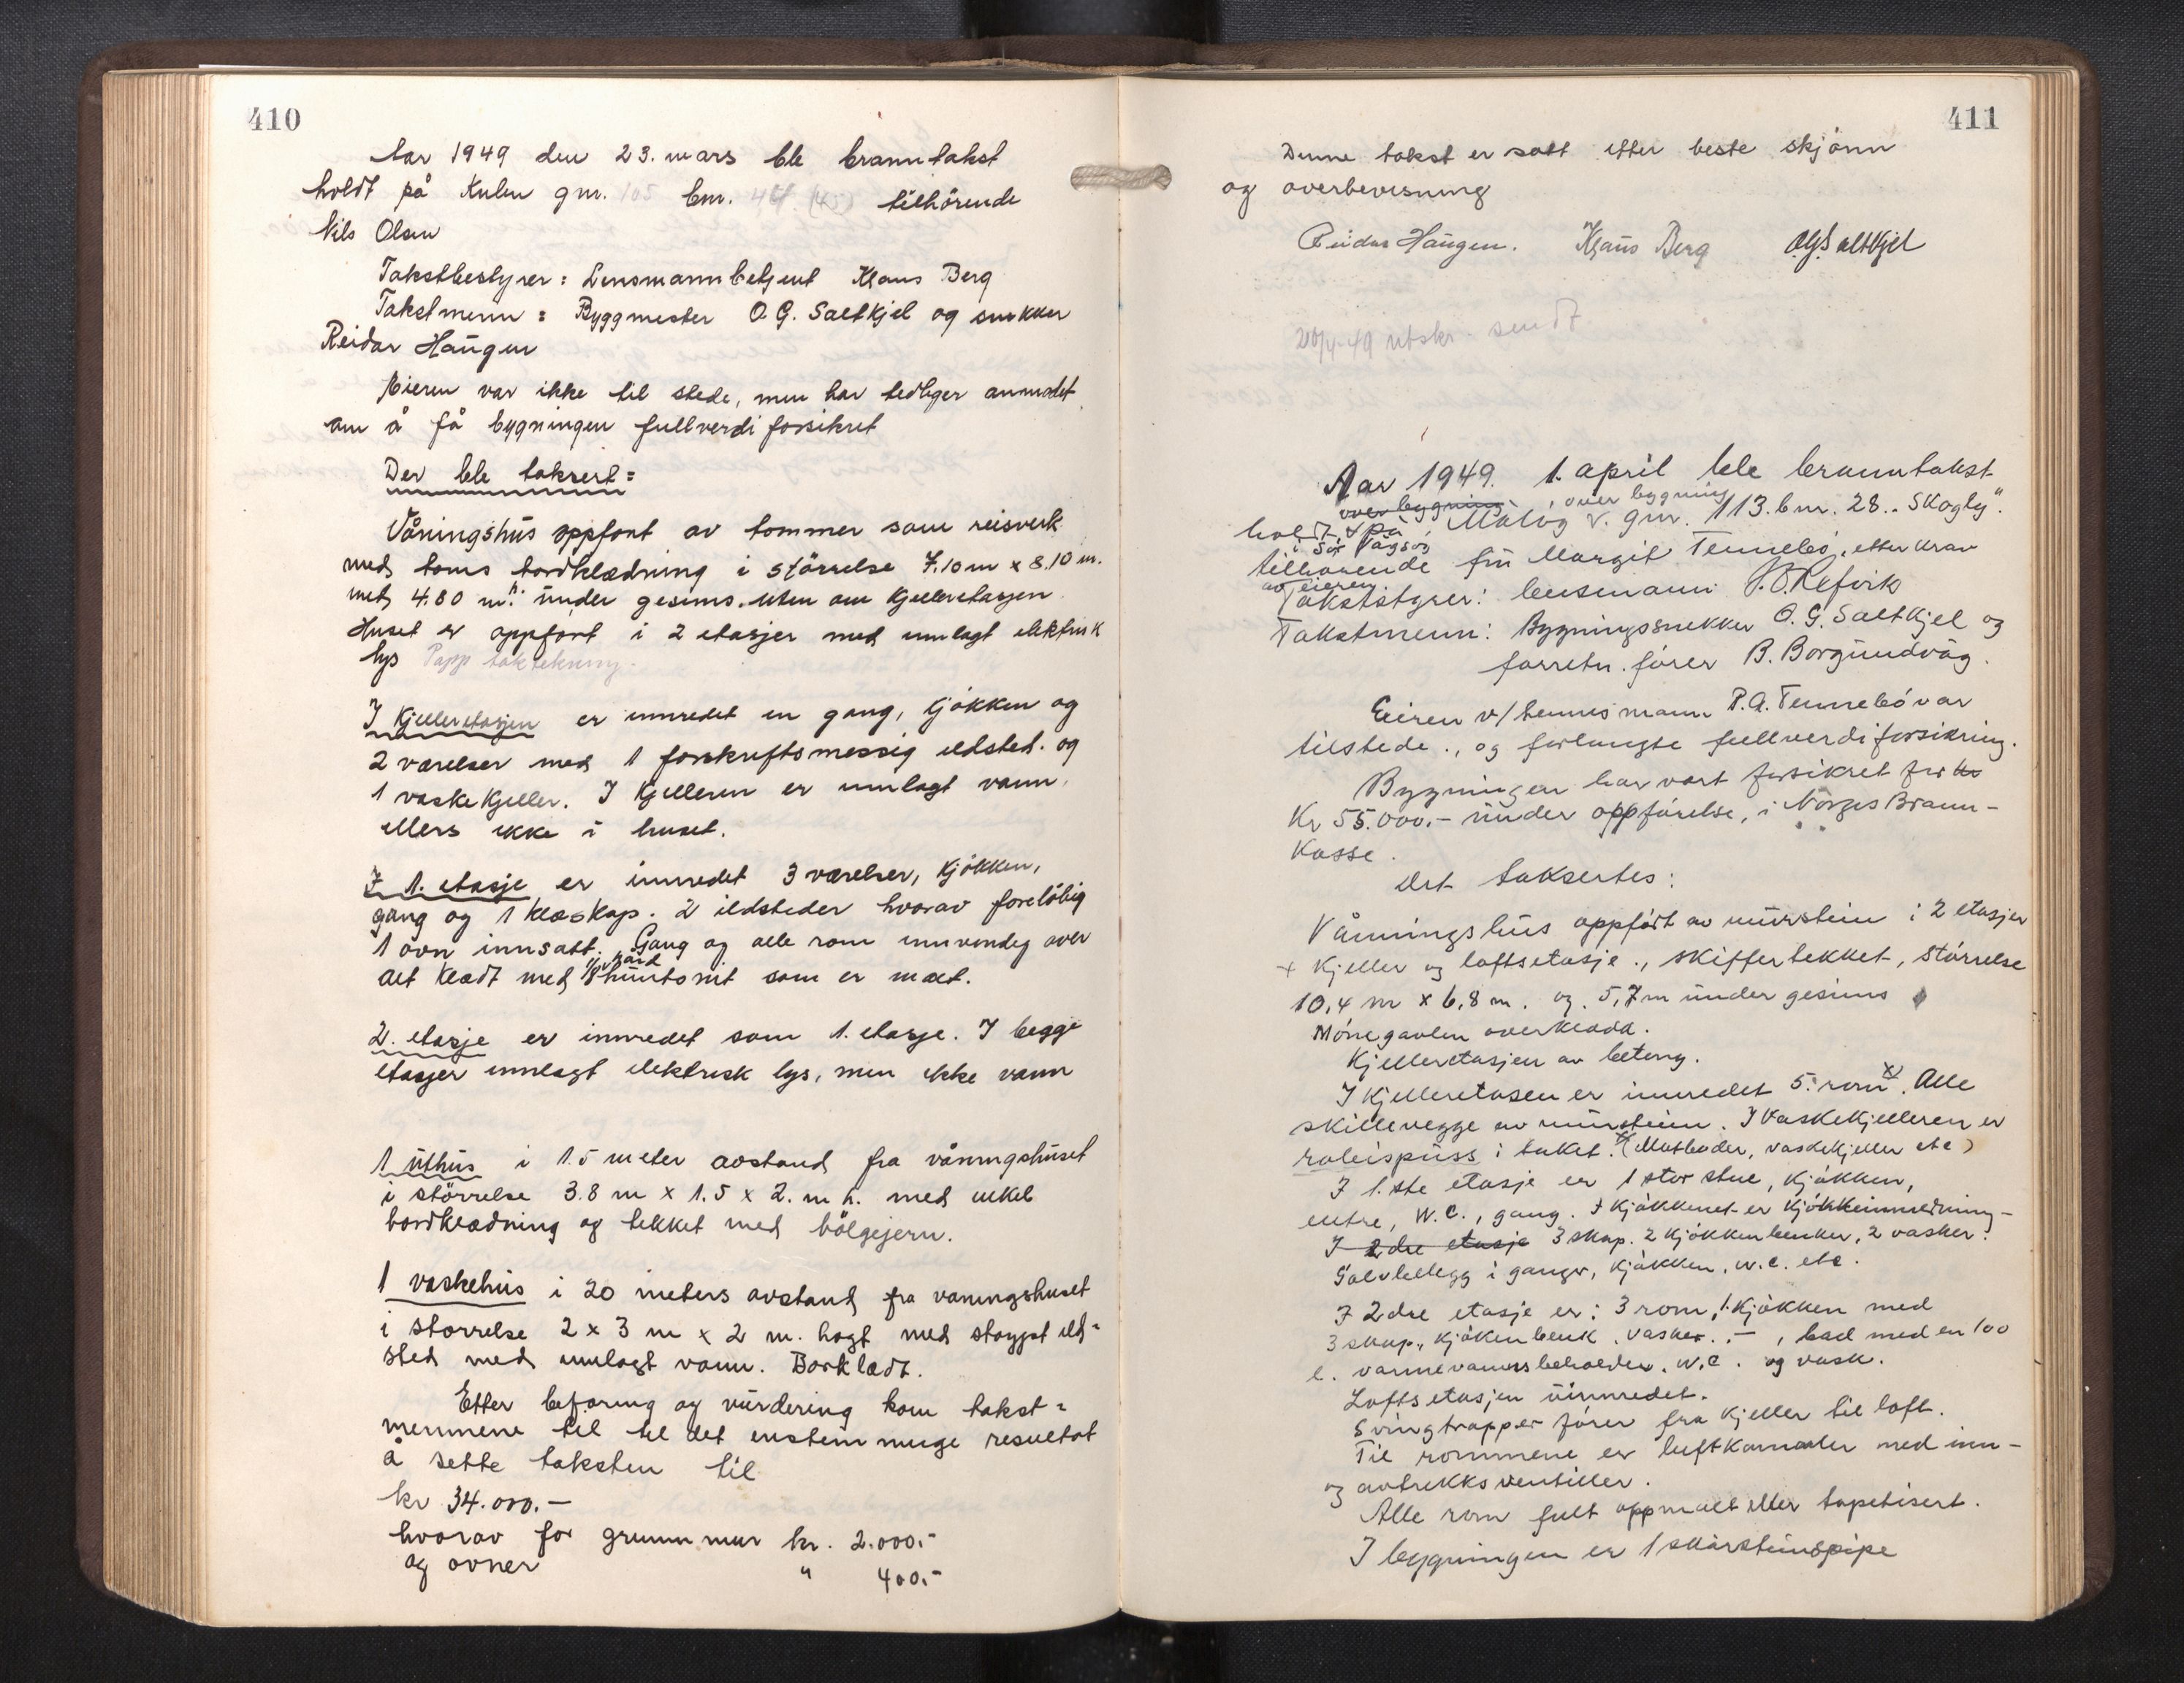 410
Aar 1949 den 23. mars ble branntakst
holdt på Kulen gnr. 105 bnr. 44 (45) tilhörende
Nils Olsen
Takstbestyrer: Lensmannbetjent Klaus Berg
Takstmenn: Byggmester O.G. Saltkjel og snekker
Reidar Haugen
Eieren var ikke til stede, men har tedliger anmodet
om å få bygningen fullverdi forsikret
Der ble taksert:
Våningshus oppfört av tommer som reisverk
med toms bordklædning i störrelse 7.10 m x 8.10 m.
met 4.80 m. h. under gesims. uten om kjelleretasjen
Huset er oppfört i 2 etasjer med innlagt elektrisk
lys Papp taktekning.
I kjelleretasjen er innredet en gang, kjökken og
2 værelser med 1 forskriftsmessig ildsted. og
1 vaskekjeller. I kjelleren er innlagt vann.
ellers ikke i huset.
I 1. etasje er innredet 3 værelser, kjökken,
gang og 1 klæskap. 2 ildsteder hvorav forelöbig
1 ovn innsatt. Gang og alle rom innvendig over
alt klædt med 1/8" hård huntonit som er malt.
2. etasje er innredet som 1. etasje. I begge
etasjer innlagt elektrisk lys, men ikke vann
1 uthus i 15 meter avstand fra våningshuset
i störrelse 3.8 m x 1.5 x 2. m h. med enkel
bordklædning og tekket med bölgejern.
1 vaskehus i 20 meters avstand fra vaningshuset
i storrelse 2 x 3 m x 2 m. hogt med stoypt ild-
sted med innlagt vann. Borklædt.
Etter befaring og vurdering kom takst-
mennene til til det enstemmige resultat
å sette taksten til
kr 34.000.-
hvorav for grunnmur kr. 2.000.-
og ovner " 400.-
411
Denne takst er satt etter beste skjönn
og overbevisning
Reidar Haugen. Klaus Berg O.G. Saltkjel
20/4-49 utskr. sendt
Aar 1949. 1. april ble branntakst
over bygning , over bygning
holdt, på Måløy v. gnr. 113. bnr. 28. "Skogly".
i Sör Vågsöy
tilhörende fru Margit Tennebö, etter krav
av eieren.
Takststyrer: lensmann P.O. Refvik
Takstmenn: Bygningssnekker O.G. Saltkjel og
forretn. förer B. Borgundvåg.
Eieren v/ hennes mann P.A. Tennebö var
tilstede., og forlangte fullverdiforsikring.
Bygningen har vært forsikret for kr
Kr 55.000.- under oppförelse, i Norges Brann-
kasse.
Det taksertes:
Vånningshus oppfört av murstein i 2 etasjer
+ kjeller og loftsetasje., skiffertekket, störrelse
10,4 m x 6,8 m. og. 5,7 m under gesims
Mönegavlen overkledd.
Kjelleretasjen av betong.
I kjelleretasen er innredet 5. rom x). Alle
skillevegge av murstein. I vaskekjelleren er
rabeispuss i taket. x) (Matboder, vaskekjeller etc)
I 1.ste etasje er 1 stor stue, kjökken,
entre, W.C., gang. I kjökkenet er kjökkeninnredning-
I 2dre etasje 3 skap. 2 kjökkenbenker, 2 vasker.
Golvbelegg i ganger, kjökken, w.c. etc.
I 2dre etasje er: 3 rom, 1. kjökken med
3 skap., kjökenbenk, vasker. .- , bad med en 100
l. varmevannsbeholder. W.C. og vask.
Loftsetasjen uinnredet.
Svingtrapper förer fra kjeller til loft.
Til rommene er luftkanaler med inn-
og avtrekksventiller.
Alle rom fult oppmalt eller tapetisert.
I bygningen er 1 skårsteinspipe